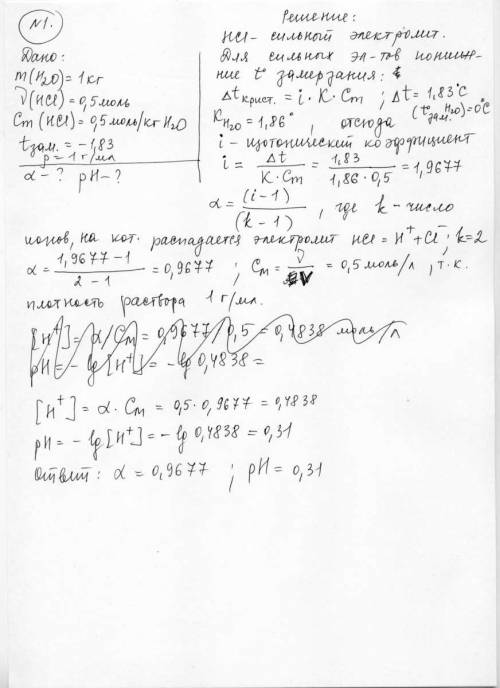 №1.
Дано:
m(H₂O) = 1 кг
ν(HCl) = 0,5 моль
Cm(HCl) = 0,5 моль/кг H₂O
tзам. = -1,83
ρ = 1 г/мл
α - ? pH - ?
Решение:
HCl - сильный электролит.
Для сильных эл-тов пониже-
ние t° замерзания:
Δt крист. = i · K · Cm ; Δt = 1,83°C
K H₂O = 1,86° , отсюда (t° зам. H₂O) = 0°C
i - изотонический коэффициент
i = Δt / (K · Cm) = 1,83 / (1,86 · 0,5) = 1,9677
α = (i - 1) / (k - 1) , где k - число
ионов, на кот. распадается электролит HCl = H⁺ + Cl⁻; k = 2
α = (1,9677 - 1) / (2 - 1) = 0,9677 ; Cm = ν / V = 0,5 моль/л , т.к.
плотность раствора 1 г/мл.
[H⁺] = α/Cm = 0,9677/0,5 = 0,4838 моль/л
pH = - lg [H⁺] = - lg 0,4838 =
[H⁺] = α · Cm = 0,5 · 0,9677 = 0,4838
pH = - lg [H⁺] = - lg 0,4838 = 0,31
Ответ: α = 0,9677 ; pH = 0,31